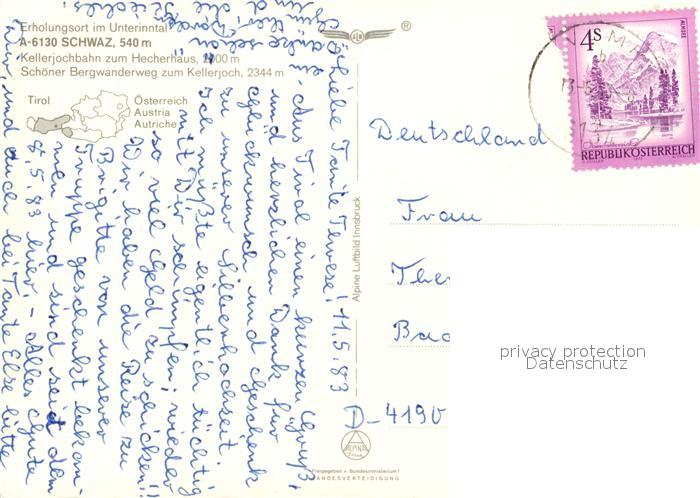 Erholungsort im Unterinntal
A-6130 SCHWAZ, 540 m
Kellerjochbahn zum Hecherhaus, 1900 m
Schöner Bergwanderweg zum Kellerjoch, 2344 m
Tirol
Österreich
Austria
Autriche
Liebe Tante Therese! 11.5.83
Aus Tirol einen kurzen Gruß,
und herzlichen Dank für
Glückwunsch und Geschenk
zu unserer Silberhochzeit.
Ich müßte eigentlich tüchtig
mit Dir schimpfen, wieder
so viel Geld zu schicken!!
Wir haben die Reise zu
Brigitte von unserer
Truppe geschenkt bekom-
men und sind seit dem
4.5.83 hier. - Alles Gute
und auch bei Tante Else bitte
Alpine Luftbild Innsbruck
4S
REPUBLIK ÖSTERREICH
Deutschland
Frau
The
D-4190
privacy protection
Datenschutz
ALPINE
Freigegeben v. Bundesministerium f.
LANDESVERTEIDIGUNG